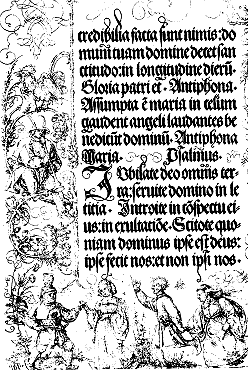 credibilia facta sunt nimis: do
mum tuam domine decet san
ctitudo: in longitudine dierū.
Gloria patri et · Antiphona
Assumpta ē maria in celum
gaudent angeli laudantes be
nedicūt dominū. Antiphona
Maria. Psalmus.
IUbilate deo omnis ter
ra: seruite domino in le
titia · Introite in cōspectu ei
us: in exultatiōe. Scitote quo
niam dominus ipse est deus:
ipse fecit nos: et non ipsi nos ·